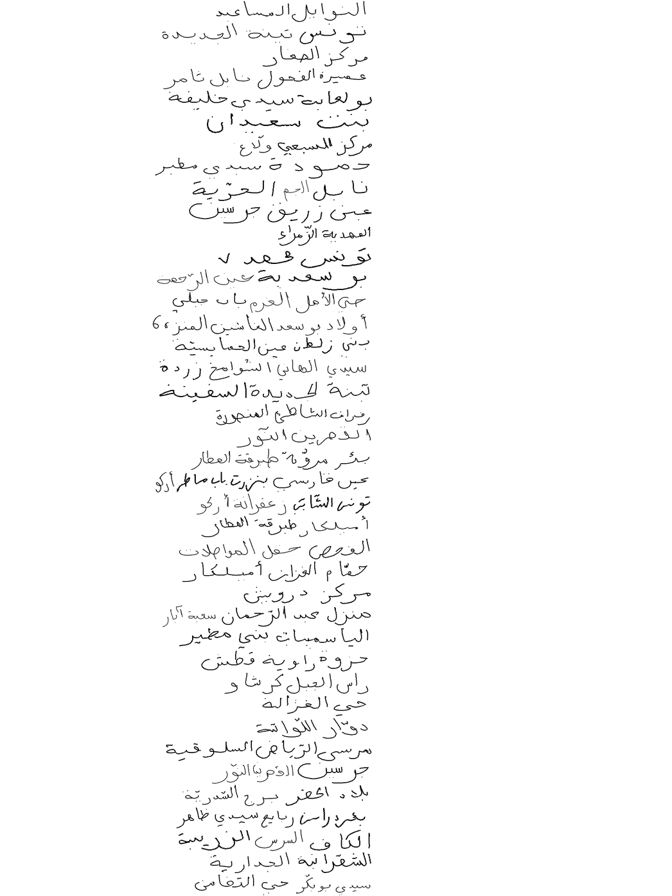 النوايل المساعيد
تونس تبنة الجديدة
مركز الصفار
عميرة الفحول نابل ثامر
بولعابة سيدي خليفة
بنت سعيدان
مركز السبعي ولاّع
حمودة سيدي مطير
نابل الحرّية
عين زريق جرسين
المهدية الزّهراء
تونس
بو سعدية عين الرّحمة
حي الأمل العرم باب قبلي
أولاد بو سعد الماشين المنزه 6
بني زلطن عين الحمايسيّة
سيدي الهاني الشوامخ زردة
تبنة الجديدة السفينة
رمرات الشاطئ المنصورة
الدهرين النّور
بئر مروّة طبرقة العطار
عين فارسي بنزرت باب ماطر أركو
تونس الشّابي زعفرانة أركو
أمبلكار طبرقة العطار
الفحص حفل المواصلات
حمّام الغزاز أمبلكار
مركز درويش
منزل عبد الرّحمان سعبة آبار
الياسمينات بني مطير
حزوة زاوية قطش
راس الجبل كرشاو
حي الغزالة
دوّار اللّواتة
مرسى الرّياض السلوقية
جرسين النّور
بلاد الحضر برج السّدريّة
بئر دراسن ربايع سيدي ظاهر
الكاف السرس الزريبة
الشقرانية الجدارية
سيدي بوبكر حي التضامن